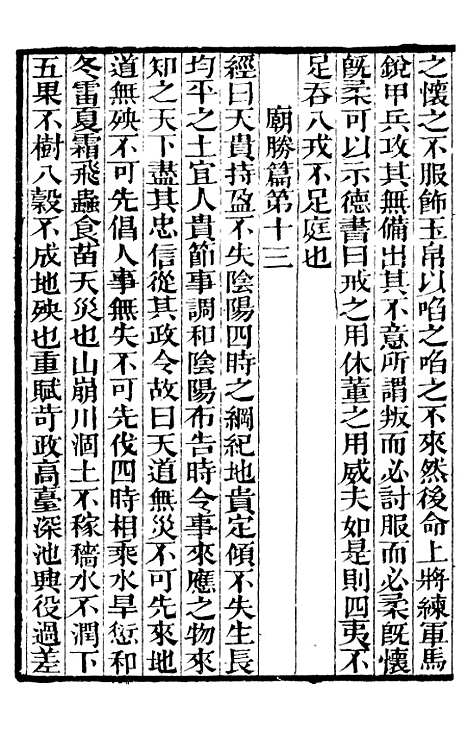 之懷之不服飾玉帛以啗之啗之不來然後命上將練軍馬
銳甲兵攻其無備出其不意所謂叛而必討服而必柔旣懷
旣柔可以示德書曰戒之用休董之用威夫如是則四夷不
足吞八戎不足庭也
廟勝篇第十三
經曰天貴持盈不失陰陽四時之綱紀地貴定傾不失生長
均平之土宜人貴節事調和陰陽布告時令事來應之物來
知之天下盡其忠信從其政令故曰天道無災不可先來地
道無殃不可先倡人事無失不可先伐四時相乘水旱愆和
冬雷夏霜飛蟲食苗天災也山崩川涸土不稼穡水不潤下
五果不樹八穀不成地殃也重賦苛政高臺深池興役過差